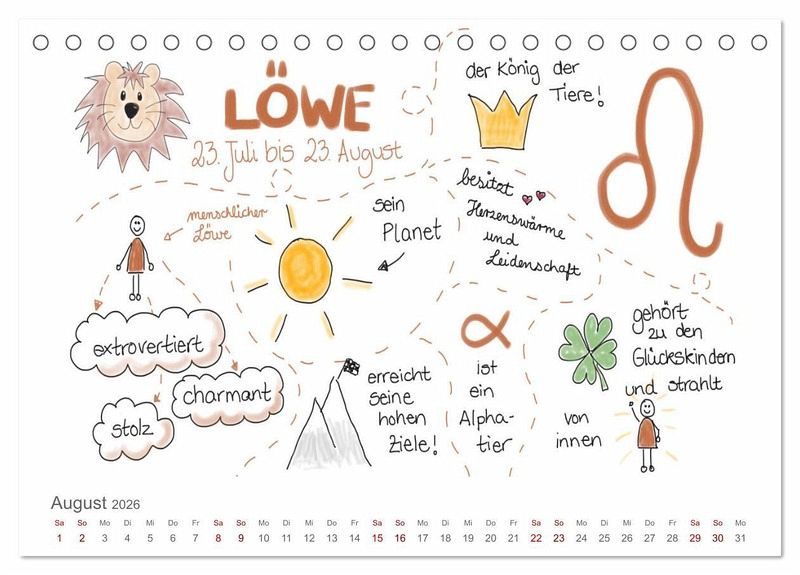 LÖWE
23. Juli bis 23. August
der König der
Tiere!
menschlicher
Löwe
extrovertiert
charmant
stolz
sein
Planet
besitzt
Herzenswärme
und
Leidenschaft
erreicht
seine
hohen
Ziele!
ist
ein
Alpha-
tier
gehört
zu den
Glückskindern
und strahlt
von
innen
August 2026
Sa So Mo Di Mi Do Fr Sa So Mo Di Mi Do Fr Sa So Mo Di Mi Do Fr Sa So Mo Di Mi Do Fr Sa So Mo
1 2 3 4 5 6 7 8 9 10 11 12 13 14 15 16 17 18 19 20 21 22 23 24 25 26 27 28 29 30 31